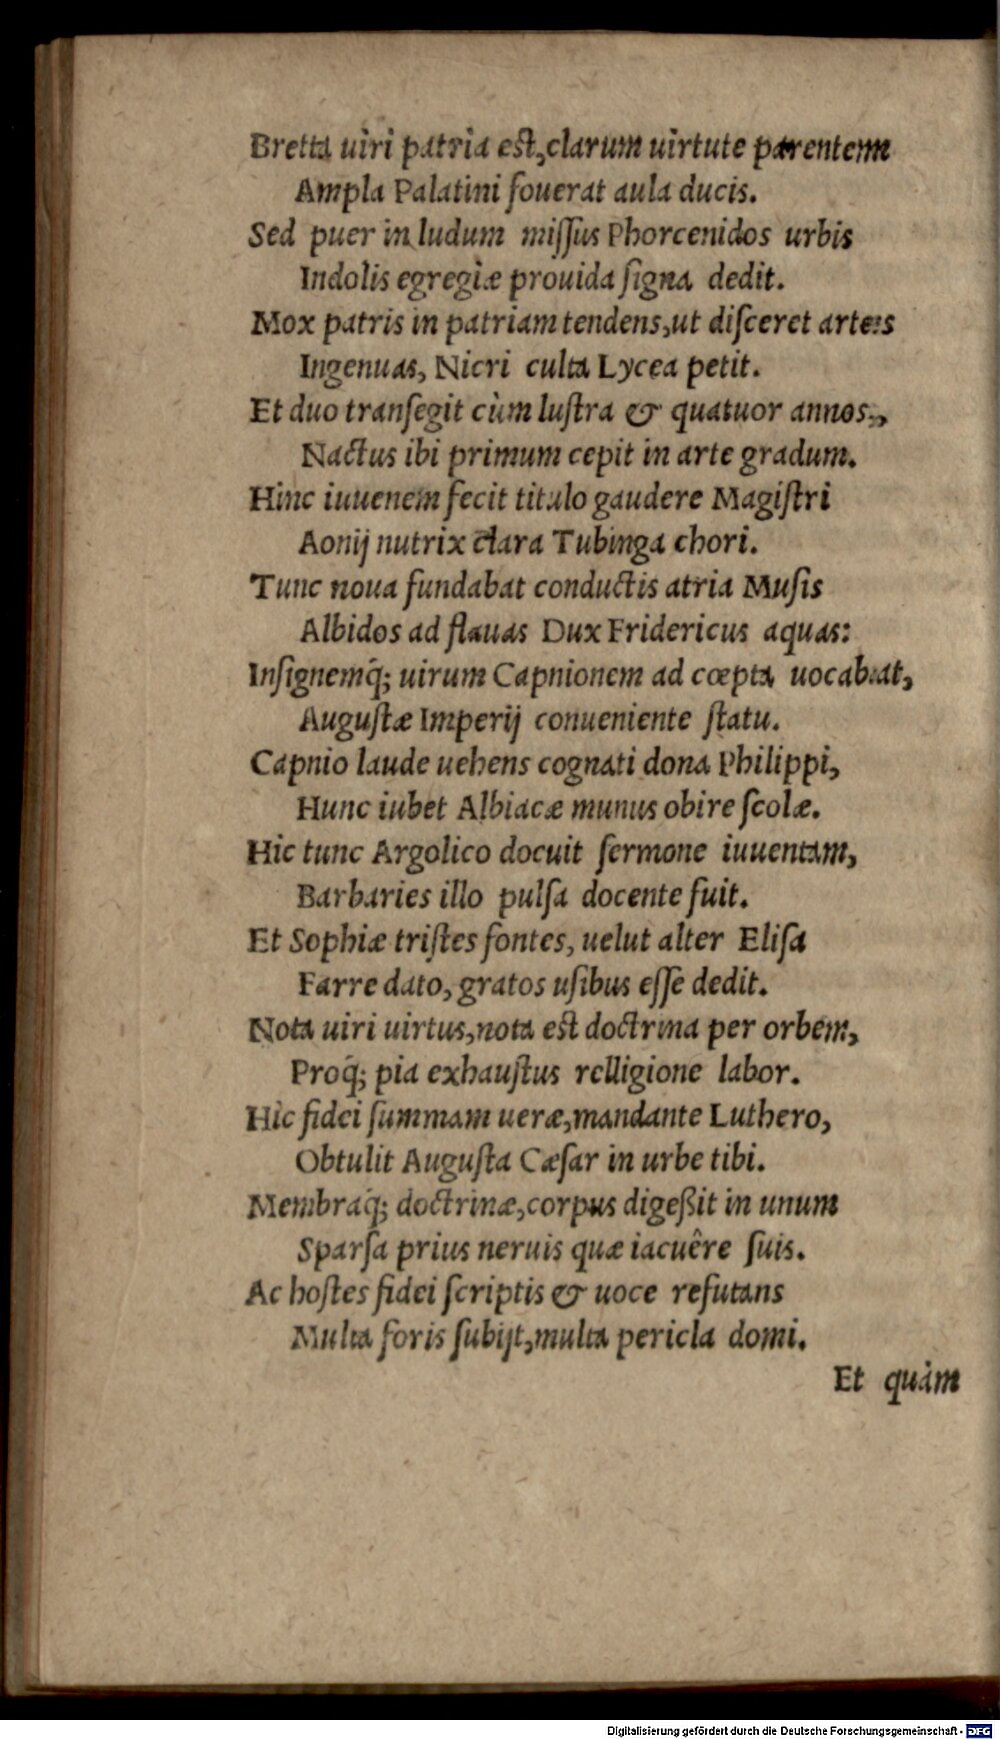 Bretta uiri patria est, clarum uirtute parentem
Ampla Palatini fouerat aula ducis.
Sed puer in ludum miſſus Phorcenidos urbis
Indolis egregiæ prouida ſigna dedit.
Mox patris in patriam tendens, ut diſceret artes
Ingenuas, Nicri culta Lycea petit.
Et duo tranſegit cùm luſtra & quatuor annos,
Nactus ibi primum cepit in arte gradum.
Hinc iuuenem fecit titulo gaudere Magiſtri
Aonij nutrix clara Tubinga chori.
Tunc noua fundabat conductis atria Muſis
Albidos ad flauas Dux Fridericus aquas:
Inſignemq́; uirum Capnionem ad cœpta uocabat,
Auguſtæ Imperij conueniente ſtatu.
Capnio laude uehens cognati dona Philippi,
Hunc iubet Albiacæ munus obire ſcolæ.
Hic tunc Argolico docuit ſermone iuuentam,
Barbaries illo pulſa docente fuit.
Et Sophiæ triſtes fontes, uelut alter Eliſa
Farre dato, gratos uſibus eſſe dedit.
Nota uiri uirtus, nota est doctrina per orbem,
Proq́; pia exhauſtus relligione labor.
Hic fidei ſummam ueræ, mandante Luthero,
Obtulit Auguſta Cæſar in urbe tibi.
Membraq́; doctrinæ, corpus digeßit in unum
Sparſa prius neruis quæ iacuêre ſuis.
Ac hoſtes fidei ſcriptis & uoce refutans
Multa foris ſubijt, multa pericla domi.
Et quàm
Digitalisierung gefördert durch die Deutsche Forschungsgemeinschaft - DFG